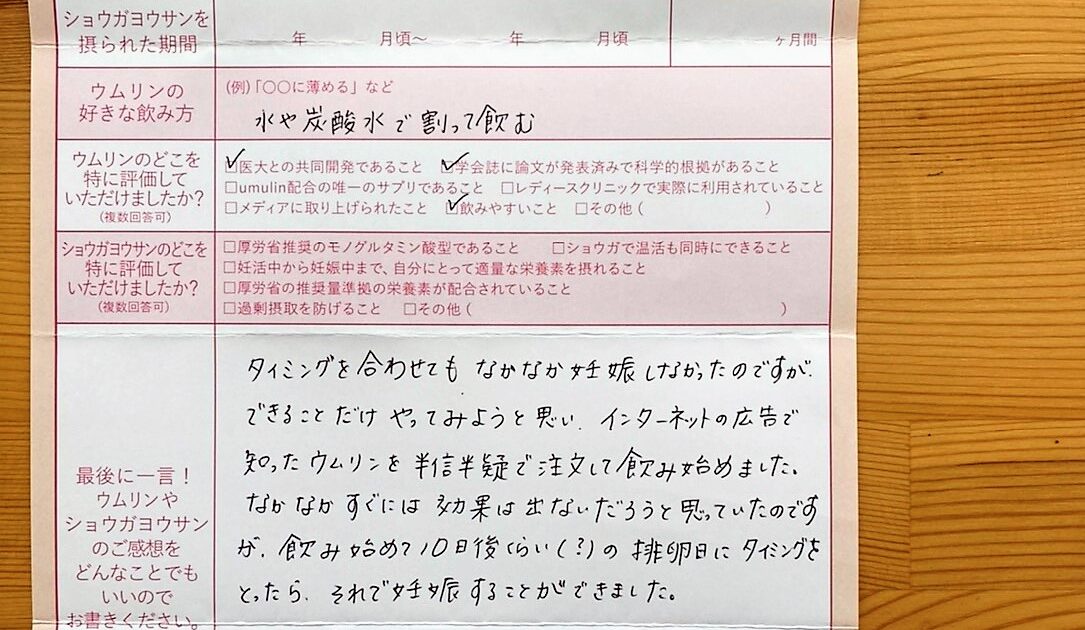 ショウガヨウサンを
摂られた期間
年 月頃～ 年 月頃 ヶ月間
ウムリンの
好きな飲み方
(例)「〇〇に薄める」など
水や炭酸水で割って飲む
ウムリンのどこを
特に評価して
いただけましたか?
(複数回答可)
☑医大との共同開発であること ☑学会誌に論文が発表済みで科学的根拠があること
□umulin配合の唯一のサプリであること □レディースクリニックで実際に利用されていること
□メディアに取り上げられたこと ☑飲みやすいこと □その他 ( )
ショウガヨウサンのどこを
特に評価して
いただけましたか?
(複数回答可)
□厚労省推奨のモノグルタミン酸型であること □ショウガで温活も同時にできること
□妊活中から妊娠中まで、自分にとって適量な栄養素を摂れること
□厚労省の推奨量準拠の栄養素が配合されていること
□過剰摂取を防げること □その他 ( )
最後に一言!
ウムリンや
ショウガヨウサン
のご感想を
どんなことでも
いいので
お書きください。
タイミングを合わせても なかなか妊娠しなかったのですが、
できることだけ やってみようと思い、インターネットの広告で
知ったウムリンを半信半疑で注文して飲み始めました。
なかなかすぐには効果は出ないだろうと思っていたのです
が、飲み始めて10日後くらい(?)の排卵日にタイミングを
とったら、それで妊娠することができました。